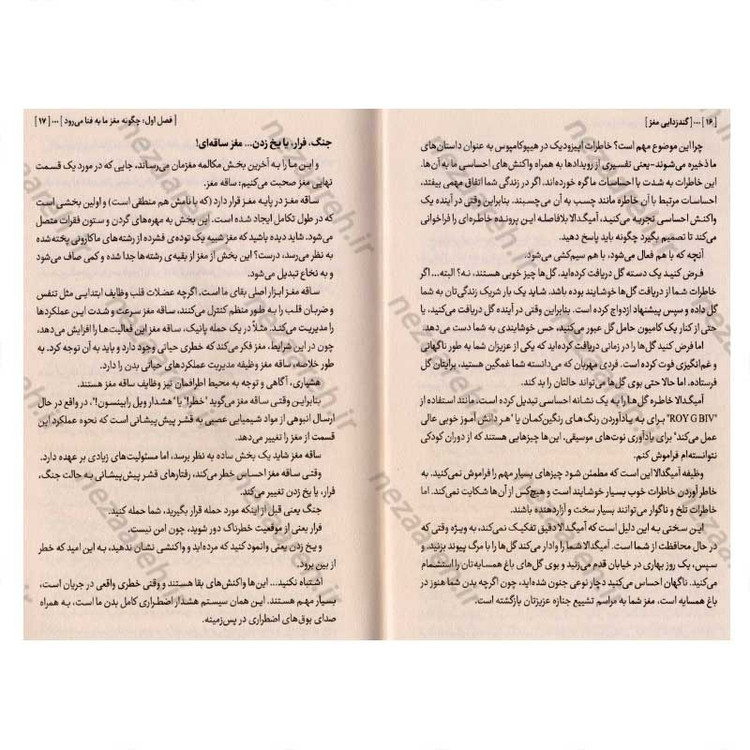 [ ۱۶ ] ... [ گندزدایی مغز ]
چرا این موضوع مهم است؟ خاطرات اپیزودیک در هیپوکامپوس به عنوان داستان‌های
ما ذخیره می‌شوند-یعنی تفسیری از رویدادها به همراه واکنش‌های احساسی ما به آن‌ها.
این خاطرات به شدت با احساسات ما گره خورده‌اند. اگر در زندگی شما اتفاق مهمی بیفتد،
احساسات مرتبط با آن خاطره مانند چسب به آن می‌چسبند. بنابراین وقتی در آینده یک
واکنش احساسی تجربه می‌کنید، آمیگدالا بلافاصله این پرونده خاطره‌ای را فراخوانی
می‌کند تا تصمیم بگیرد چگونه باید پاسخ دهید.
آنچه که با هم فعال می‌شود، با هم سیم‌کشی می‌شود.
فرض کنید یک دسته گل دریافت کرده‌اید. گل‌ها چیز خوبی هستند، نه؟ البته... اگر
خاطرات شما از دریافت گل‌ها خوشایند بوده باشد. شاید یک بار شریک زندگی‌تان به شما
گل داده و سپس پیشنهاد ازدواج کرده است. بنابراین وقتی در آینده گل دریافت می‌کنید، یا
حتی از کنار یک کامیون حامل گل عبور می‌کنید، حس خوشایندی به شما دست می‌دهد.
اما فرض کنید گل‌ها را در زمانی دریافت کرده‌اید که یکی از عزیزان شما به طور ناگهانی
و غم‌انگیزی فوت کرده است. فردی مهربان که می‌دانسته شما غمگین هستید، برایتان گل
فرستاده، اما حالا حتی بوی گل‌ها می‌تواند حالتان را بد کند.
آمیگدالا خاطره گل‌ها را به یک نشانه احساسی تبدیل کرده است، مانند استفاده از
"ROY G BIV" برای به یادآوردن رنگ‌های رنگین‌کمان یا "هر دانش آموز خوبی عالی
عمل می‌کند" برای یادآوری نوت‌های موسیقی. این‌ها چیزهایی هستند که از دوران کودکی
نتوانسته‌ام فراموش کنم.
وظیفه آمیگدالا این است که مطمئن شود چیزهای بسیار مهم را فراموش نکنید. به
خاطر آوردن خاطرات خوب بسیار خوشایند است و هیچ‌کس از آن‌ها شکایت نمی‌کند. اما
خاطرات تلخ و ناگوار می‌توانند بسیار سخت و آزاردهنده باشند.
این سختی به این دلیل است که آمیگدالا دقیق تفکیک نمی‌کند، به ویژه وقتی که
در حال محافظت از شما است. آمیگدالا شما را وادار می‌کند گل‌ها را با مرگ پیوند بزنید. و
سپس، یک روز بهاری در خیابان قدم می‌زنید و بوی گل‌های باغ همسایه‌تان را استشمام
می‌کنید. ناگهان احساس می‌کنید دچار نوعی جنون شده‌اید، چون اگرچه بدن شما هنوز در
باغ همسایه است، مغز شما به مراسم تشییع جنازه عزیزتان بازگشته است.
[ فصل اول: چگونه مغز ما به فنا می‌رود ] ... [ ۱۷ ]
جنگ، فرار، یا یخ زدن... مغز ساقه‌ای!
و این ما را به آخرین بخش مکالمه مغزمان می‌رساند، جایی که در مورد یک قسمت
نهایی مغز صحبت می‌کنیم: ساقه مغز.
ساقه مغز در پایه مغز قرار دارد (که با نامش هم منطقی است) و اولین بخشی است
که در طول تکامل ایجاد شده است. این بخش به مهره‌های گردن و ستون فقرات متصل
می‌شود. شاید دیده باشید که مغز شبیه یک توده‌ی فشرده از رشته‌های ماکارونی پخته‌شده
به نظر می‌رسد، درست؟ این بخش از مغز از بقیه‌ی رشته‌ها جدا شده و کمی صاف می‌شود
و به نخاع تبدیل می‌شود.
ساقه مغز ابزار اصلی بقای ما است. اگرچه عضلات قلب وظایف ابتدایی مثل تنفس
و ضربان قلب را به طور منظم کنترل می‌کنند، ساقه مغز سرعت و شدت این عملکردها
را مدیریت می‌کند. مثلاً در یک حمله پانیک، ساقه مغز این فعالیت‌ها را افزایش می‌دهد،
چون در این شرایط، مغز فکر می‌کند که خطری حیاتی وجود دارد و باید به آن توجه کرد. به
طور خلاصه، ساقه مغز وظیفه مدیریت عملکردهای حیاتی بدن را دارد.
هشیاری، آگاهی و توجه به محیط اطرافمان نیز وظایف ساقه مغز هستند.
بنابراین وقتی ساقه مغز می‌گوید "خطر!" یا "هشدار ویل رابینسون!"، در واقع در حال
ارسال انبوهی از مواد شیمیایی عصبی به قشر پیش‌پیشانی است که نحوه عملکرد این
قسمت از مغز را تغییر می‌دهد.
ساقه مغز شاید یک بخش ساده به نظر برسد، اما مسئولیت‌های زیادی بر عهده دارد.
وقتی ساقه مغز احساس خطر می‌کند، رفتارهای قشر پیش‌پیشانی به حالت جنگ،
فرار، یا یخ زدن تغییر می‌کند.
جنگ یعنی قبل از اینکه مورد حمله قرار بگیرید، شما حمله کنید.
فرار یعنی از موقعیت خطرناک دور شوید، چون امن نیست.
و یخ زدن یعنی وانمود کنید که مرده‌اید و واکنشی نشان ندهید، به این امید که خطر
از بین برود.
اشتباه نکنید... این‌ها واکنش‌های بقا هستند و وقتی خطری واقعی در جریان است،
بسیار مهم هستند. این همان سیستم هشدار اضطراری کامل بدن ما است، به همراه
صدای بوق‌های اضطراری در پس‌زمینه.
nezaareh.ir